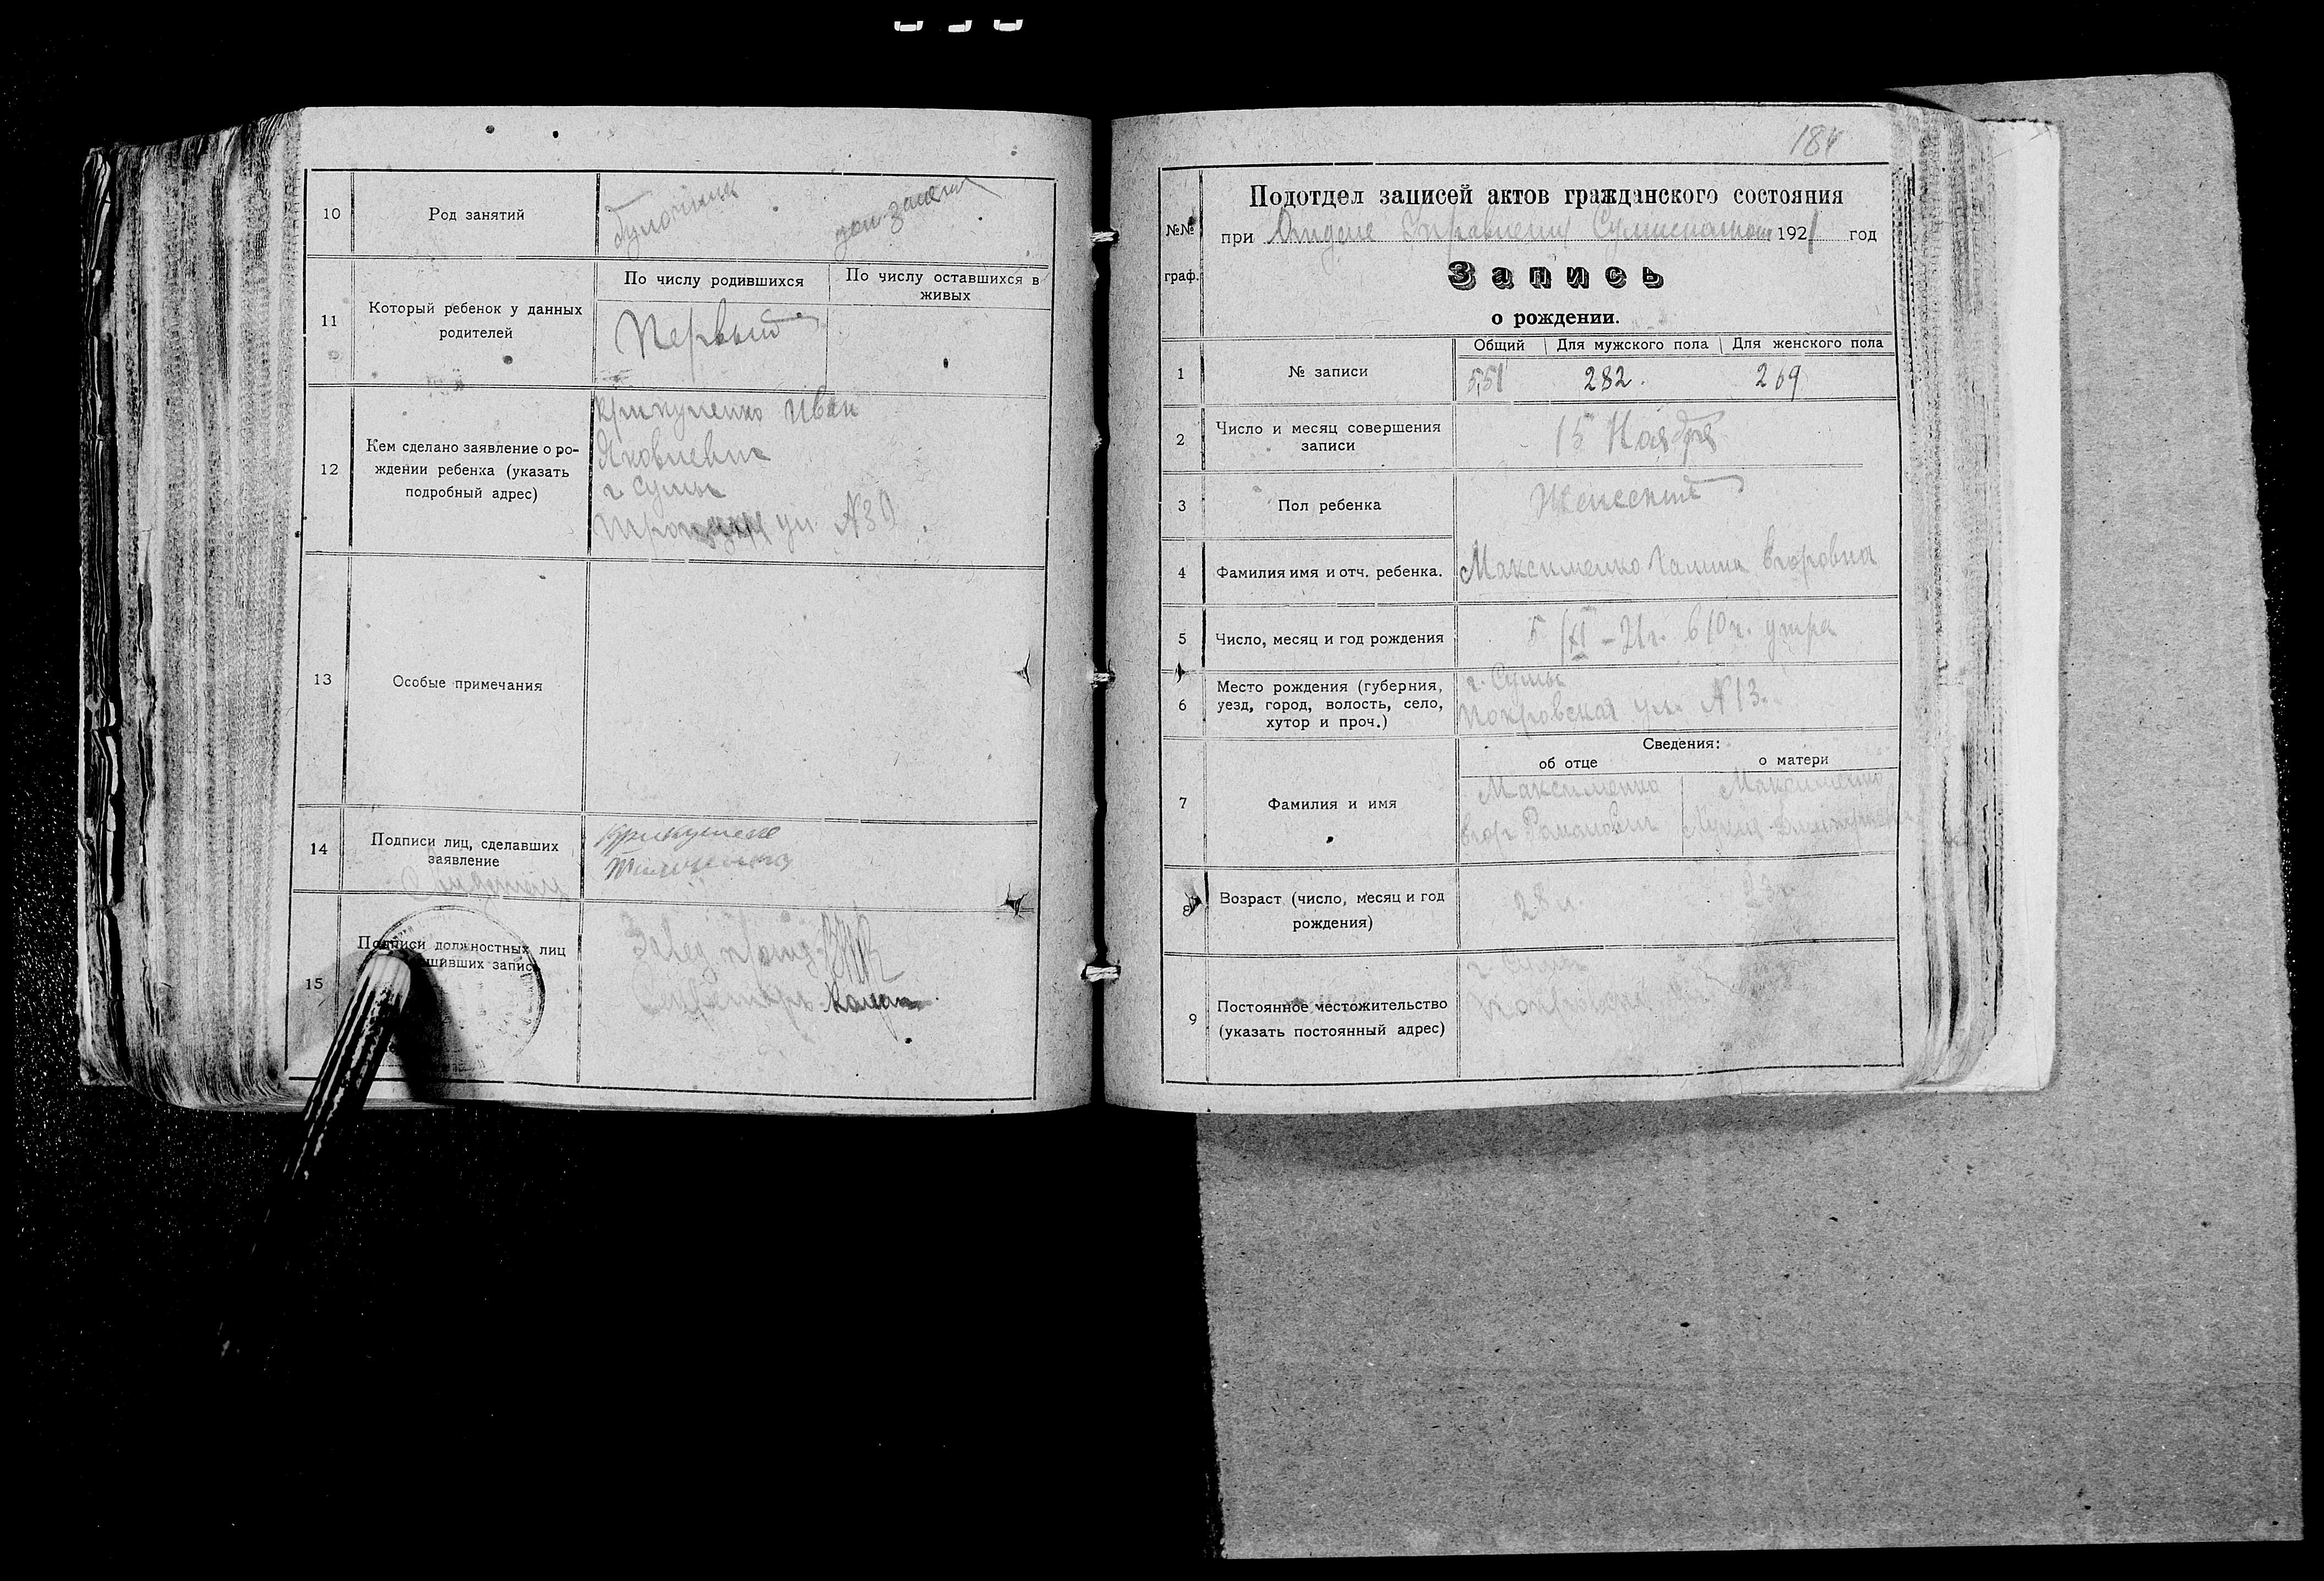 10
Род занятий
булочник
дом. занятия
11
Который ребенок у данных
родителей
По числу родившихся
По числу оставшихся в
живых
Первый
12
Кем сделано заявление о ро-
ждении ребенка (указать
подробный адрес)
Иван
Яковлевич
г Сумы
ул. №30
13
Особые примечания
14
Подписи лиц, сделавших
заявление
15
Подписи должностных лиц
Завед.
Секретарь
184
№№
граф.
Подотдел записей актов гражданского состояния
при Отделе Управления 1921 год
Запись
о рождении.
1
№ записи
Общий
Для мужского пола
Для женского пола
551
282.
269
2
Число и месяц совершения
записи
15 Ноября
3
Пол ребенка
Женский
4
Фамилия имя и отч. ребенка.
Максименко Галина Егоровна
5
Число, месяц и год рождения
5/XI - 21 г. в 10 ч. утра
6
Место рождения (губерния,
уезд, город, волость, село,
хутор и проч.)
г. Сумы
Покровская ул. №13.
Сведения:
об отце
о матери
7
Фамилия и имя
Максименко
Егор Романович
Максименко
8
Возраст (число, месяц и год
рождения)
28 л.
23 г.
9
Постоянное местожительство
(указать постоянный адрес)
г. Сумы
Покровская